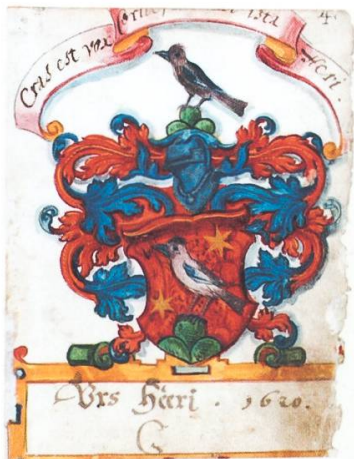 Cras est mei ista Heri.
4.
Vrs Häri . 1620.
G